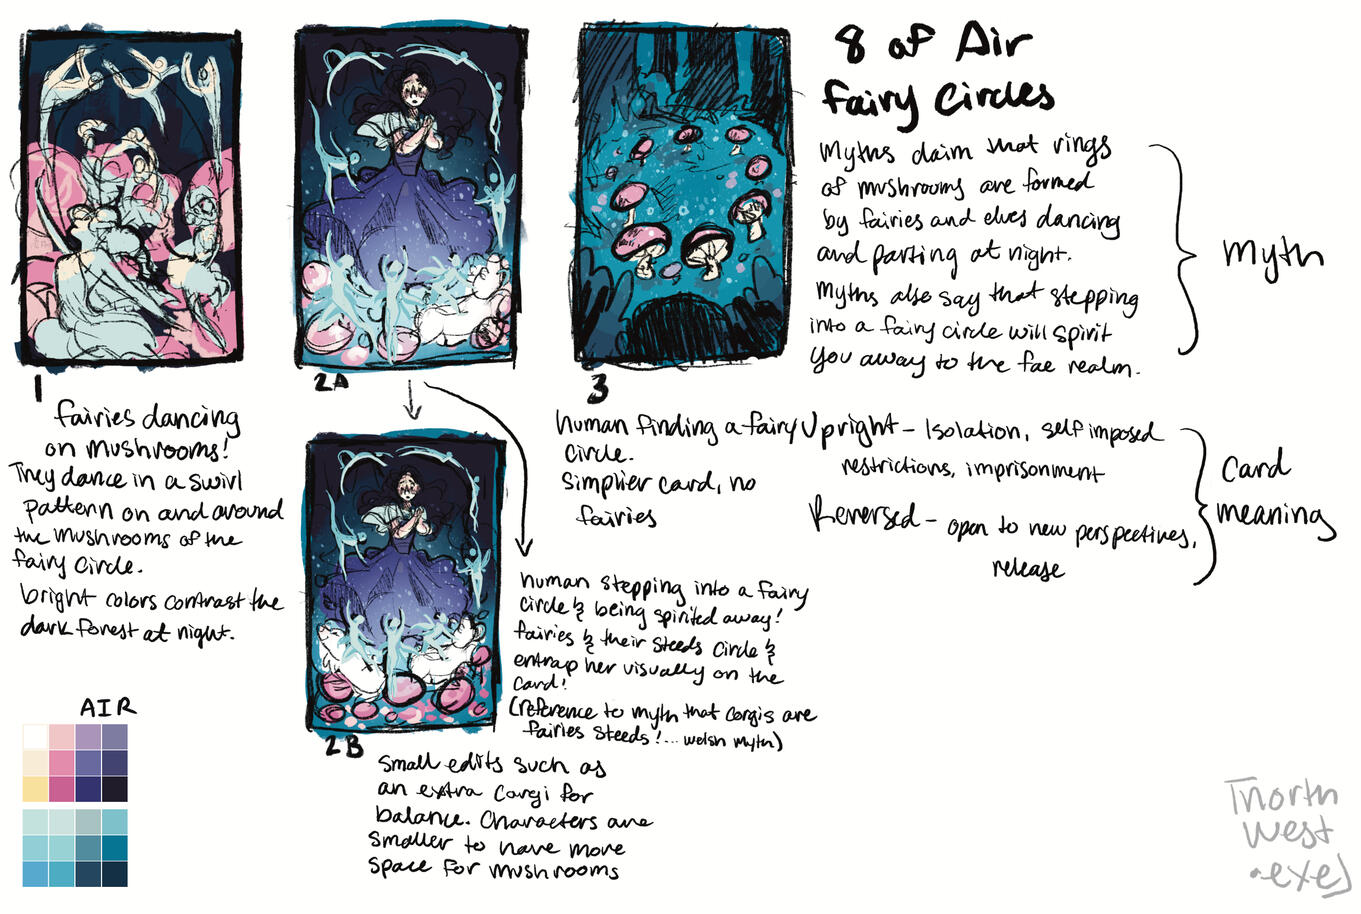 8 of Air
Fairy Circles
Myths claim that rings
of mushrooms are formed
by fairies and elves dancing
and parting at night.
Myths also say that stepping
into a fairy circle will spirit
you away to the fae realm.
Myth
Upright - Isolation, self imposed
restrictions, imprisonment
Reversed - open to new perspectives,
release
Card
meaning
1
fairies dancing
on mushrooms!
They dance in a swirl
pattern on and around
the mushrooms of the
fairy circle.
bright colors contrast the
dark forest at night.
2A
human stepping into a fairy
circle & being spirited away!
fairies & their steeds circle &
entrap her visually on the
card!
(reference to myth that corgis are
fairies steeds!... welsh myth)
2B
Small edits such as
an extra corgi for
balance. Characters are
smaller to have more
space for mushrooms
3
human finding a fairy
circle.
Simplier card, no
fairies
AIR
[north
west
.exe]